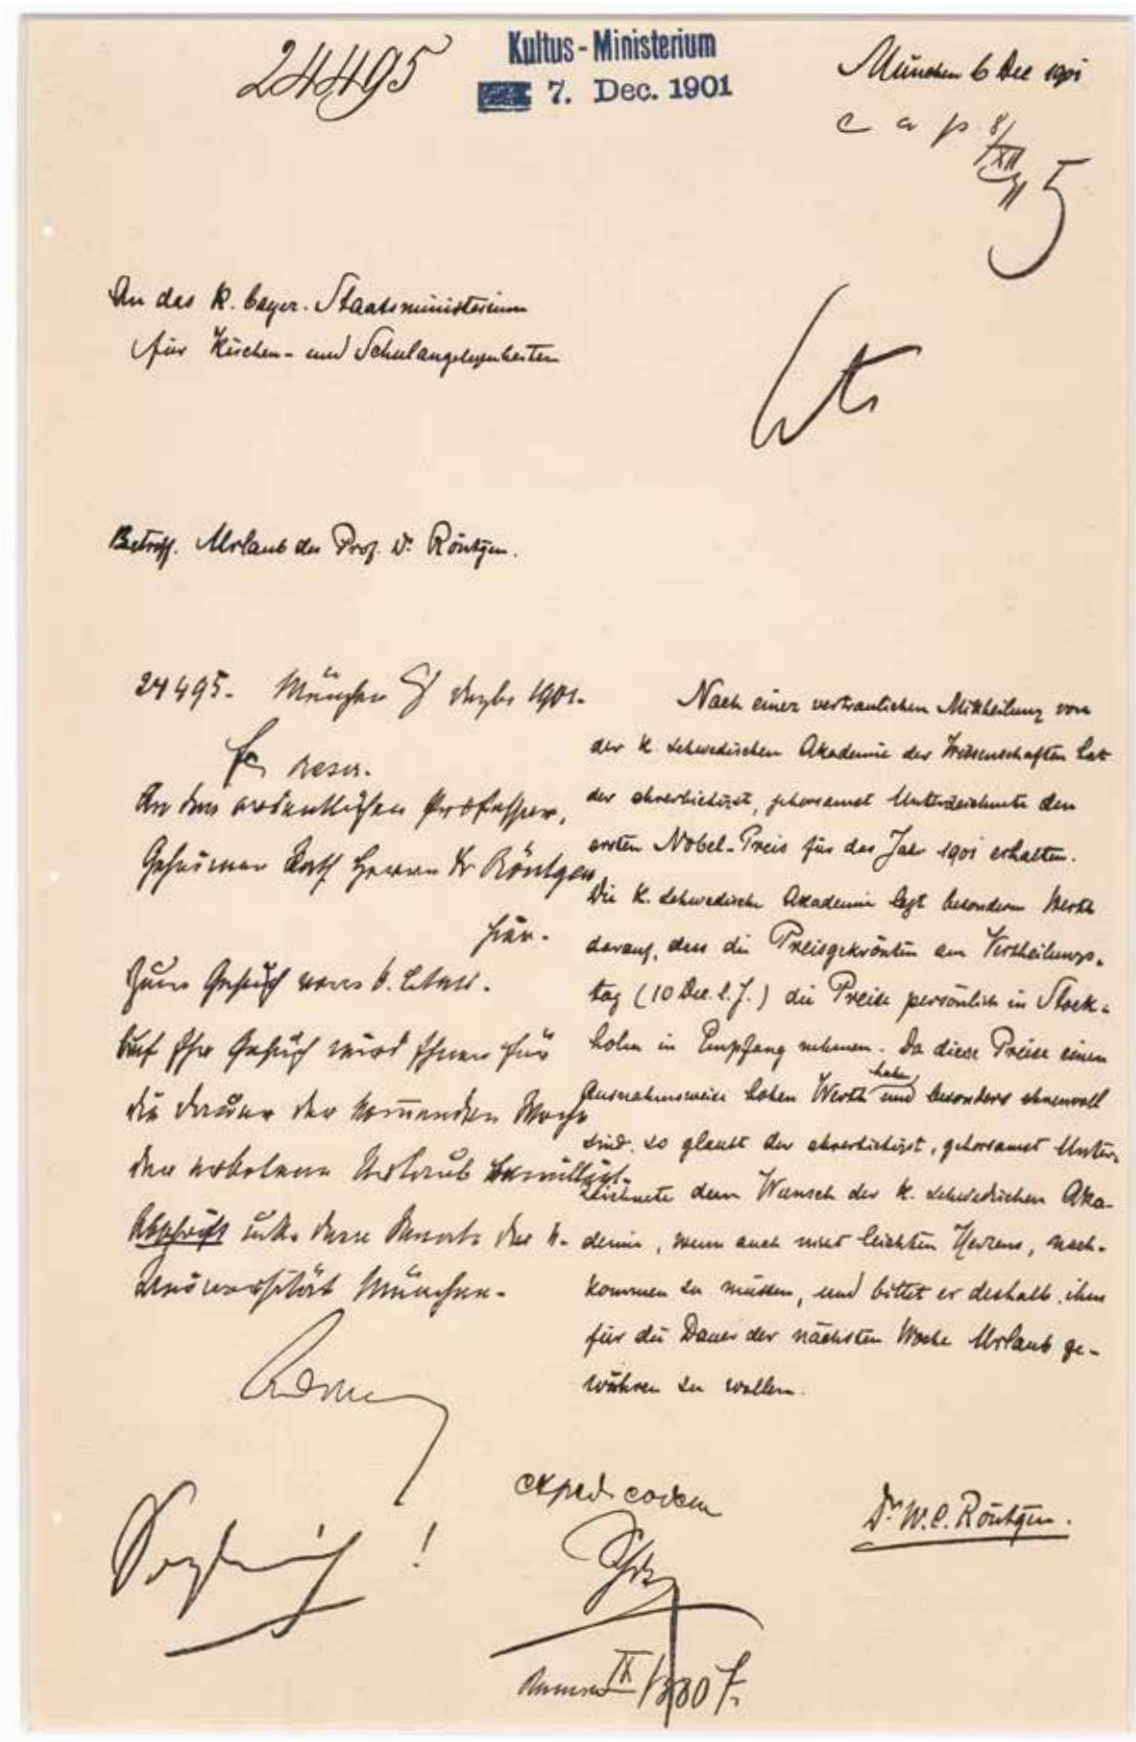 24495
Kultus-Ministerium
7. Dec. 1901
München 6 Dec 1901
c a p 8/XII
5
An das K. bayer. Staatsministerium
für Kirchen- und Schulangelegenheiten
Betreff. Urlaub des Prof. Dr. Röntgen.
24495. München 8 Dezbr 1901.
An den ordentlichen Professor,
Geheimen Rath Herrn Dr Röntgen
hier.
Zum Gesuch vom 6. l. Mts.
Auf Ihr Gesuch wird Ihnen für
die Dauer der kommenden Woche
der erbetene Urlaub bewilligt.
Abschrift dem Senate der K.
Universität München.
Sogleich!
Nach einer vertraulichen Mittheilung von
der K. schwedischen Akademie der Wissenschaften hat
der ehrerbietigst, gehorsamst Unterzeichnete den
ersten Nobel-Preis für das Jahr 1901 erhalten.
Die K. schwedische Akademie legt besonderen Werth
darauf, dass die Preisgekrönten am Vertheilungs-
tag (10 Dec. l. J.) die Preise persönlich in Stock-
holm in Empfang nehmen. Da diese Preise einen
ausnahmsweise hohen Werth haben und besonders ehrenvoll
sind, so glaubt der ehrerbietigst, gehorsamst Unter-
zeichnete dem Wunsch der K. schwedischen Aka-
demie, wenn auch nicht leichten Herzens, nach-
kommen zu müssen, und bittet er deshalb, ihm
für die Dauer der nächsten Woche Urlaub ge-
währen zu wollen.
exped. eodem
Dr. W. C. Röntgen.